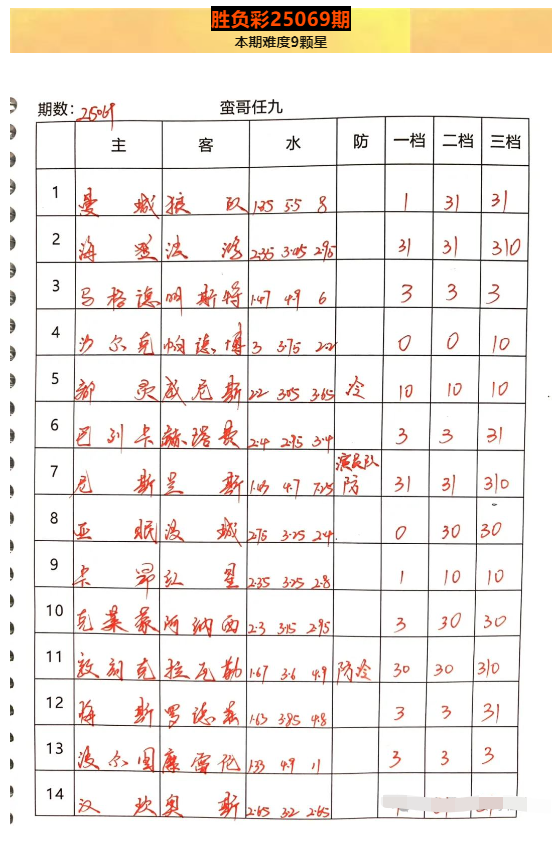 胜负彩25069期
本期难度9颗星
期数: 25069 蛮哥任九
主 客 水 防 一档 二档 三档
1 曼城 狼队 1.35 5.5 8 1 31 31
2 海登 波鸿 2.35 3.05 2.95 31 31 310
3 马格德 明斯特 1.47 4.9 6 3 3 3
4 沙尔克 帕德博 3 3.75 0 0 10
5 都灵 威尼斯 2.2 3.05 3.65 冷 10 10 10
6 巴列卡 赫塔费 2.4 2.75 3.4 3 3 31
7 尼斯 兰斯 1.43 4.7 7.25 演员队 防 31 31 310
8 亚眠 波城 2.75 3.25 2.4 0 30 30
9 卡昂 红星 2.35 3.25 2.8 1 10 10
10 克莱蒙 阿纳西 2.3 3.15 2.95 3 30 30
11 敦刻克 拉瓦勒 1.67 3.6 4.9 防冷 30 30 310
12 梅斯 罗德兹 1.63 3.85 4.8 3 3 31
13 波尔图 摩雷伦 1.33 4.9 11 3 3 3
14 汉坎 奥斯 2.65 3.2 2.65